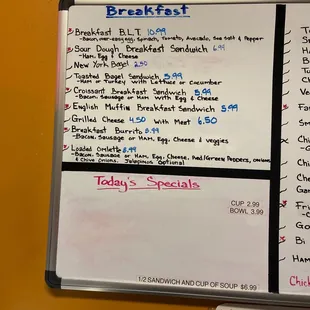 Breakfast
Breakfast B.L.T. 10.99
-Bacon, over-easy egg, Spinach, Tomato, Avocado, Sea Salt & Pepper
Sour Dough Breakfast Sandwich 6.99
-Ham, Egg & Cheese
New York Bagel 2.50
Toasted Bagel Sandwich 5.99
-Ham or Turkey with Lettuce or Cucumber
Croissant Breakfast Sandwich 5.99
-Bacon, Sausage or Ham with Egg & Cheese
English Muffin Breakfast Sandwich 5.99
Grilled Cheese 4.50 With Meat 6.50
Breakfast Burrito 5.99
-Bacon, Sausage or Ham, Egg, Cheese & Veggies
Loaded Omlette 8.99
-Bacon, Sausage or Ham, Egg, Cheese, Red/Green Peppers, onions
& Chive Onions. Jalapenos Optional
Today's Specials
CUP 2.99
BOWL 3.99
1/2 SANDWICH AND CUP OF SOUP $6.99
Bi
Ham
Chick